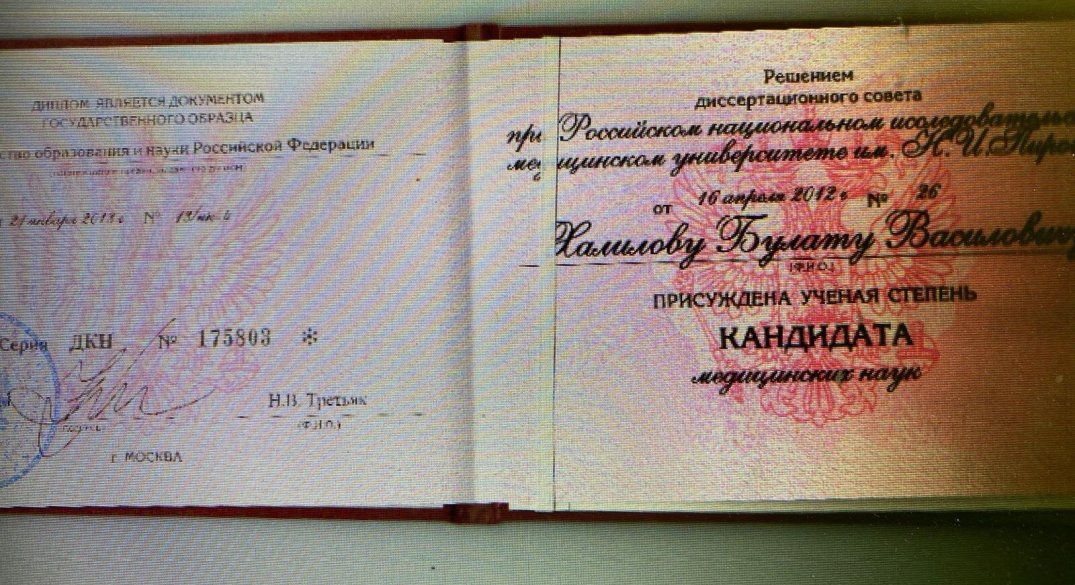 ДИПЛОМ ЯВЛЯЕТСЯ ДОКУМЕНТОМ
ГОСУДАРСТВЕННОГО ОБРАЗЦА
ство образования и науки Российской Федерации
21 января 2013 г. №
Серия ДКН № 175803 *
подпись
Н.В. Третьяк
(Ф.И.О.)
г. МОСКВА
Решением
диссертационного совета
при Российском национальном исследовательс
медицинском университете им. Н.И.Пирого
от 16 апреля 2012 г № 26
Халилову Булату Василовичу
(Ф.И.О.)
ПРИСУЖДЕНА УЧЕНАЯ СТЕПЕНЬ
КАНДИДАТА
медицинских наук